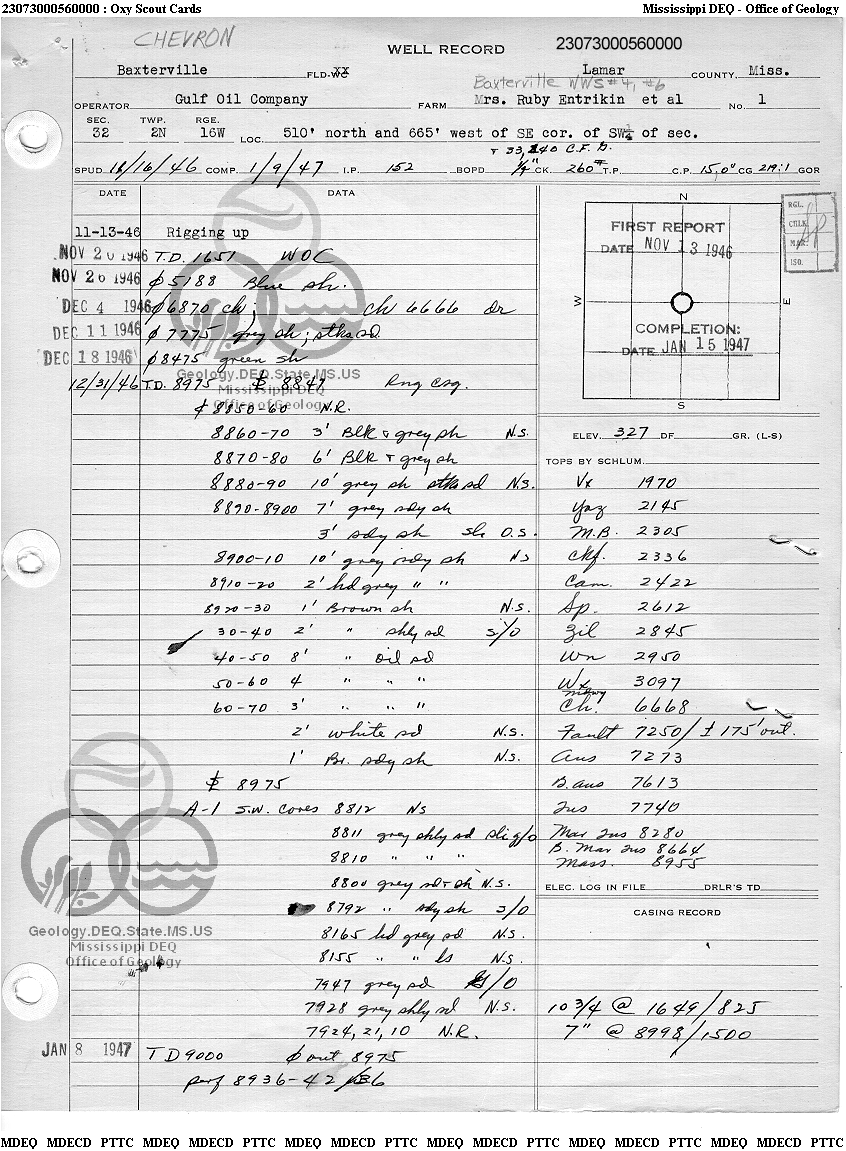 23073000560000 : Oxy Scout Cards
Mississippi DEQ - Office of Geology
CHEVRON
WELL RECORD
23073000560000
Baxterville FLD-WC xx Lamar COUNTY, Miss.
Baxterville WWS #4, #6
OPERATOR Gulf Oil Company FARM Mrs. Ruby Entrikin et al No. 1
SEC. 32 TWP. 2N RGE. 16W LOC. 510' north and 665' west of SE cor. of SW¼ of sec.
+ 33,240 C.F.G.
SPUD 11/16/46 COMP. 1/9/47 I.P. 152 BOPD ¼" CK. 260# T.P. C.P. 15.0° CG 219:1 GOR
DATE DATA
11-13-46 Rigging up
NOV 20 1946 T.D. 1651 WOC
NOV 26 1946 ϕ 5188 Blue sh.
DEC 4 1946 ϕ 6870 ch; ch 6666 dr
DEC 11 1946 ϕ 7775 grey sh; stks sd
DEC 18 1946 ϕ 8475 green sh
12/31/46 T.D. 8975 8847 Rng csg.
8850-60 N.R.
8860-70 3' Blk & grey sh N.S.
8870-80 6' Blk & grey sh
8880-90 10' grey sh stks sd N.S.
8890-8900 7' grey sdy sh
3' sdy sh sli O.S.
8900-10 10' grey sdy sh NS
8910-20 2' hd grey " "
8920-30 1' Brown sh N.S.
30-40 2' " shly sd S/O
40-50 8' " oil sd
50-60 4 " " "
60-70 3' " " "
2' white sd N.S.
1' Br. sdy sh N.S.
8975
A-1 S.W. Cores 8812 NS
8811 grey shly sd sli g/O
8810 " " "
8800 grey sd & sh N.S.
8792 " sdy sh S/O
8165 hd grey sd N.S.
8155 " " ls N.S.
7947 grey sd S/O
7928 grey shly sd N.S.
7924, 21, 10 N.R.
JAN 8 1947 TD 9000 ϕ out 8975
perf 8936-42 /36
N
W
E
S
FIRST REPORT
DATE NOV 13 1946
COMPLETION:
DATE JAN 15 1947
RGL.
CHLK
MAR.
ISO.
ELEV. 327 DF GR. (L-S)
TOPS BY SCHLUM.
Vx 1970
Yaz 2145
M.B. 2305
Ckf. 2336
Cam. 2422
Sp. 2612
Zil 2845
Wn 2950
Wx 3097
mdwy
Ch. 6668
Fault 7250/±175' out.
Aus 7273
B. Aus 7613
Tus 7740
Mar Tus 8280
B. Mar Tus 8664
Mass. 8955
ELEC. LOG IN FILE DRLR'S TD
CASING RECORD
10 3/4 @ 1649/825
7" @ 8998/1500
Geology.DEQ.State.MS.US
Mississippi DEQ
Office of Geology
Geology.DEQ.State.MS.US
Mississippi DEQ
Office of Geology
MDEQ MDECD PTTC MDEQ MDECD PTTC MDEQ MDECD PTTC MDEQ MDECD PTTC MDEQ MDECD PTTC MDEQ MDECD PTTC